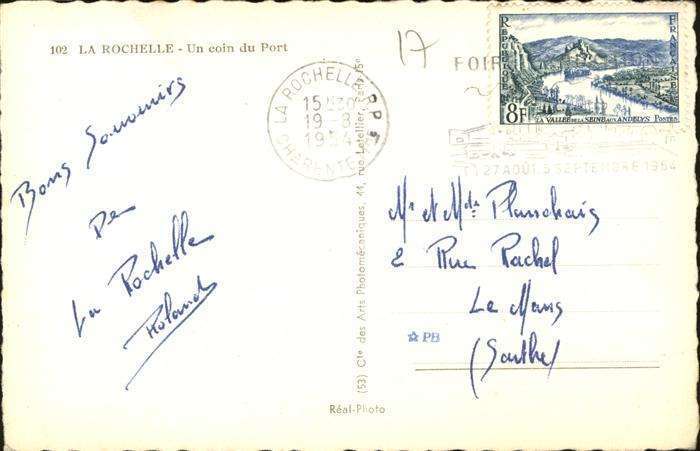 102 LA ROCHELLE - Un coin du Port
17
Bons Souvenirs
De
La Rochelle
Roland
LA ROCHELLE R.P.
15H30
19-8
1954
CHARENTE
FOIRE
27 AOUT. 5 SEPTEMBRE 1954
REPUBLIQUE
FRANÇAISE
8F
LA VALLÉE DE LA SEINE AUX ANDELYS POSTES
(53) Cie des Arts Photomécaniques, 44, rue Letellier, Paris-15e
Mr et Mde Planchais
2 Rue Rachel
Le Mans
(Sarthe)
PB
Réal-Photo